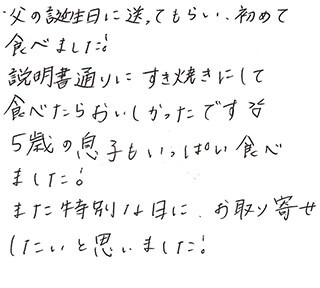 父の誕生日に送ってもらい、初めて
食べました!
説明書通りにすき焼きにして
食べたらおいしかったです
5歳の息子もいっぱい食べ
ました!
また特別な日に、お取り寄せ
したいと思いました!